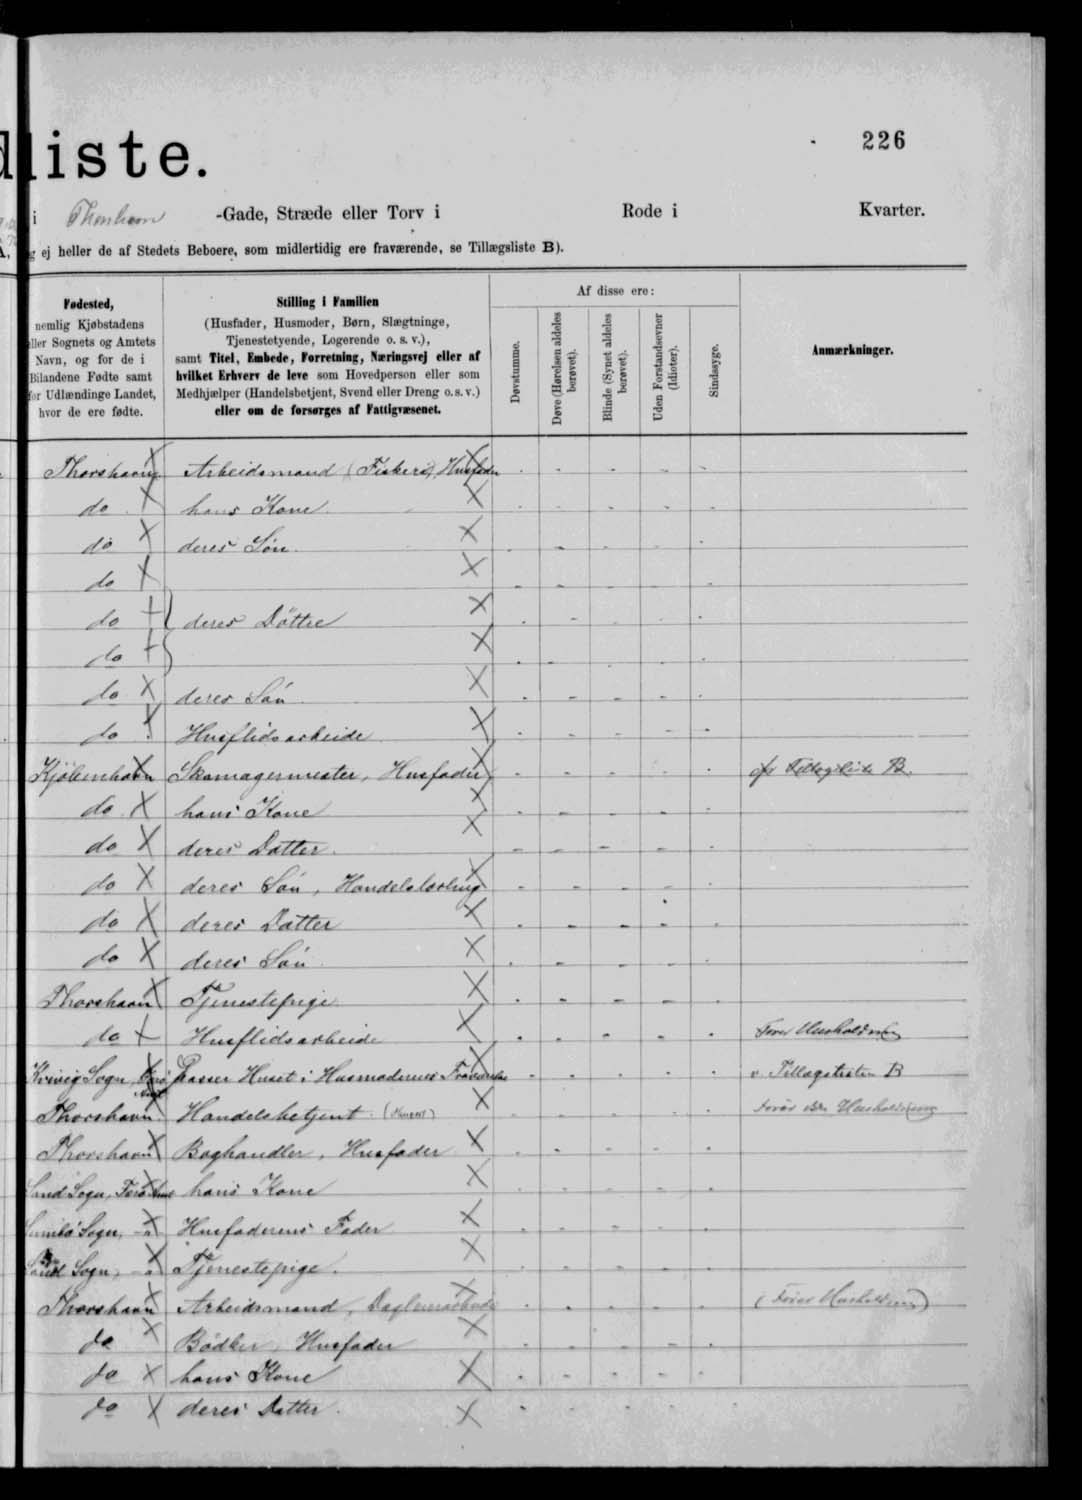 226
dliste.
i Thorshavn -Gade, Stræde eller Torv i Rode i Kvarter.
g ej heller de af Stedets Beboere, som midlertidig ere fraværende, se Tillægsliste B).
Fødested,
nemlig Kjøbstadens
eller Sognets og Amtets
Navn, og for de i
Bilandene Fødte samt
for Udlændinge Landet,
hvor de ere fødte.
Stilling i Familien
(Husfader, Husmoder, Børn, Slægtninge,
Tjenestetyende, Logerende o. s. v.),
samt Titel, Embede, Forretning, Næringsvej eller af
hvilket Erhverv de leve som Hovedperson eller som
Medhjælper (Handelsbetjent, Svend eller Dreng o. s. v.)
eller om de forsørges af Fattigvæsenet.
Af disse ere:
Døvstumme.
Døve (Hørelsen aldeles
berøvet).
Blinde (Synet aldeles
berøvet).
Uden Forstandsevner
(Idioter).
Sindssyge.
Anmærkninger.
Thorshavn Arbeidsmand (Fiskeri), Husfader
do hans Kone
do deres Søn
do
do deres Døttre
do
do deres Søn
do Husflidsarbeide
Kjøbenhavn Skomagermester, Husfader cfr Tillægsliste B.
do hans Kone
do deres Datter.
do deres Søn, Handelslærling
do deres Datter
do deres Søn
Thorshavn Tjenestepige
do Husflidsarbeide Fører Husholdning
Kvivig Sogn, Færø Amt passer Huset i Husmoderens Fraværelse v. Tillægslisten B
Thorshavn Handelsbetjent Fører Husholdning
Thorshavn Boghandler, Husfader
Sand Sogn, Færø Amt hans Kone
Sumbø Sogn, -"- Husfaderens Fader
Sand Sogn, -"- Tjenestepige.
Thorshavn Arbeidsmand, Daglønnarbeide (Fører Husholdning)
do Bødker, Husfader
do hans Kone
do deres Datter.